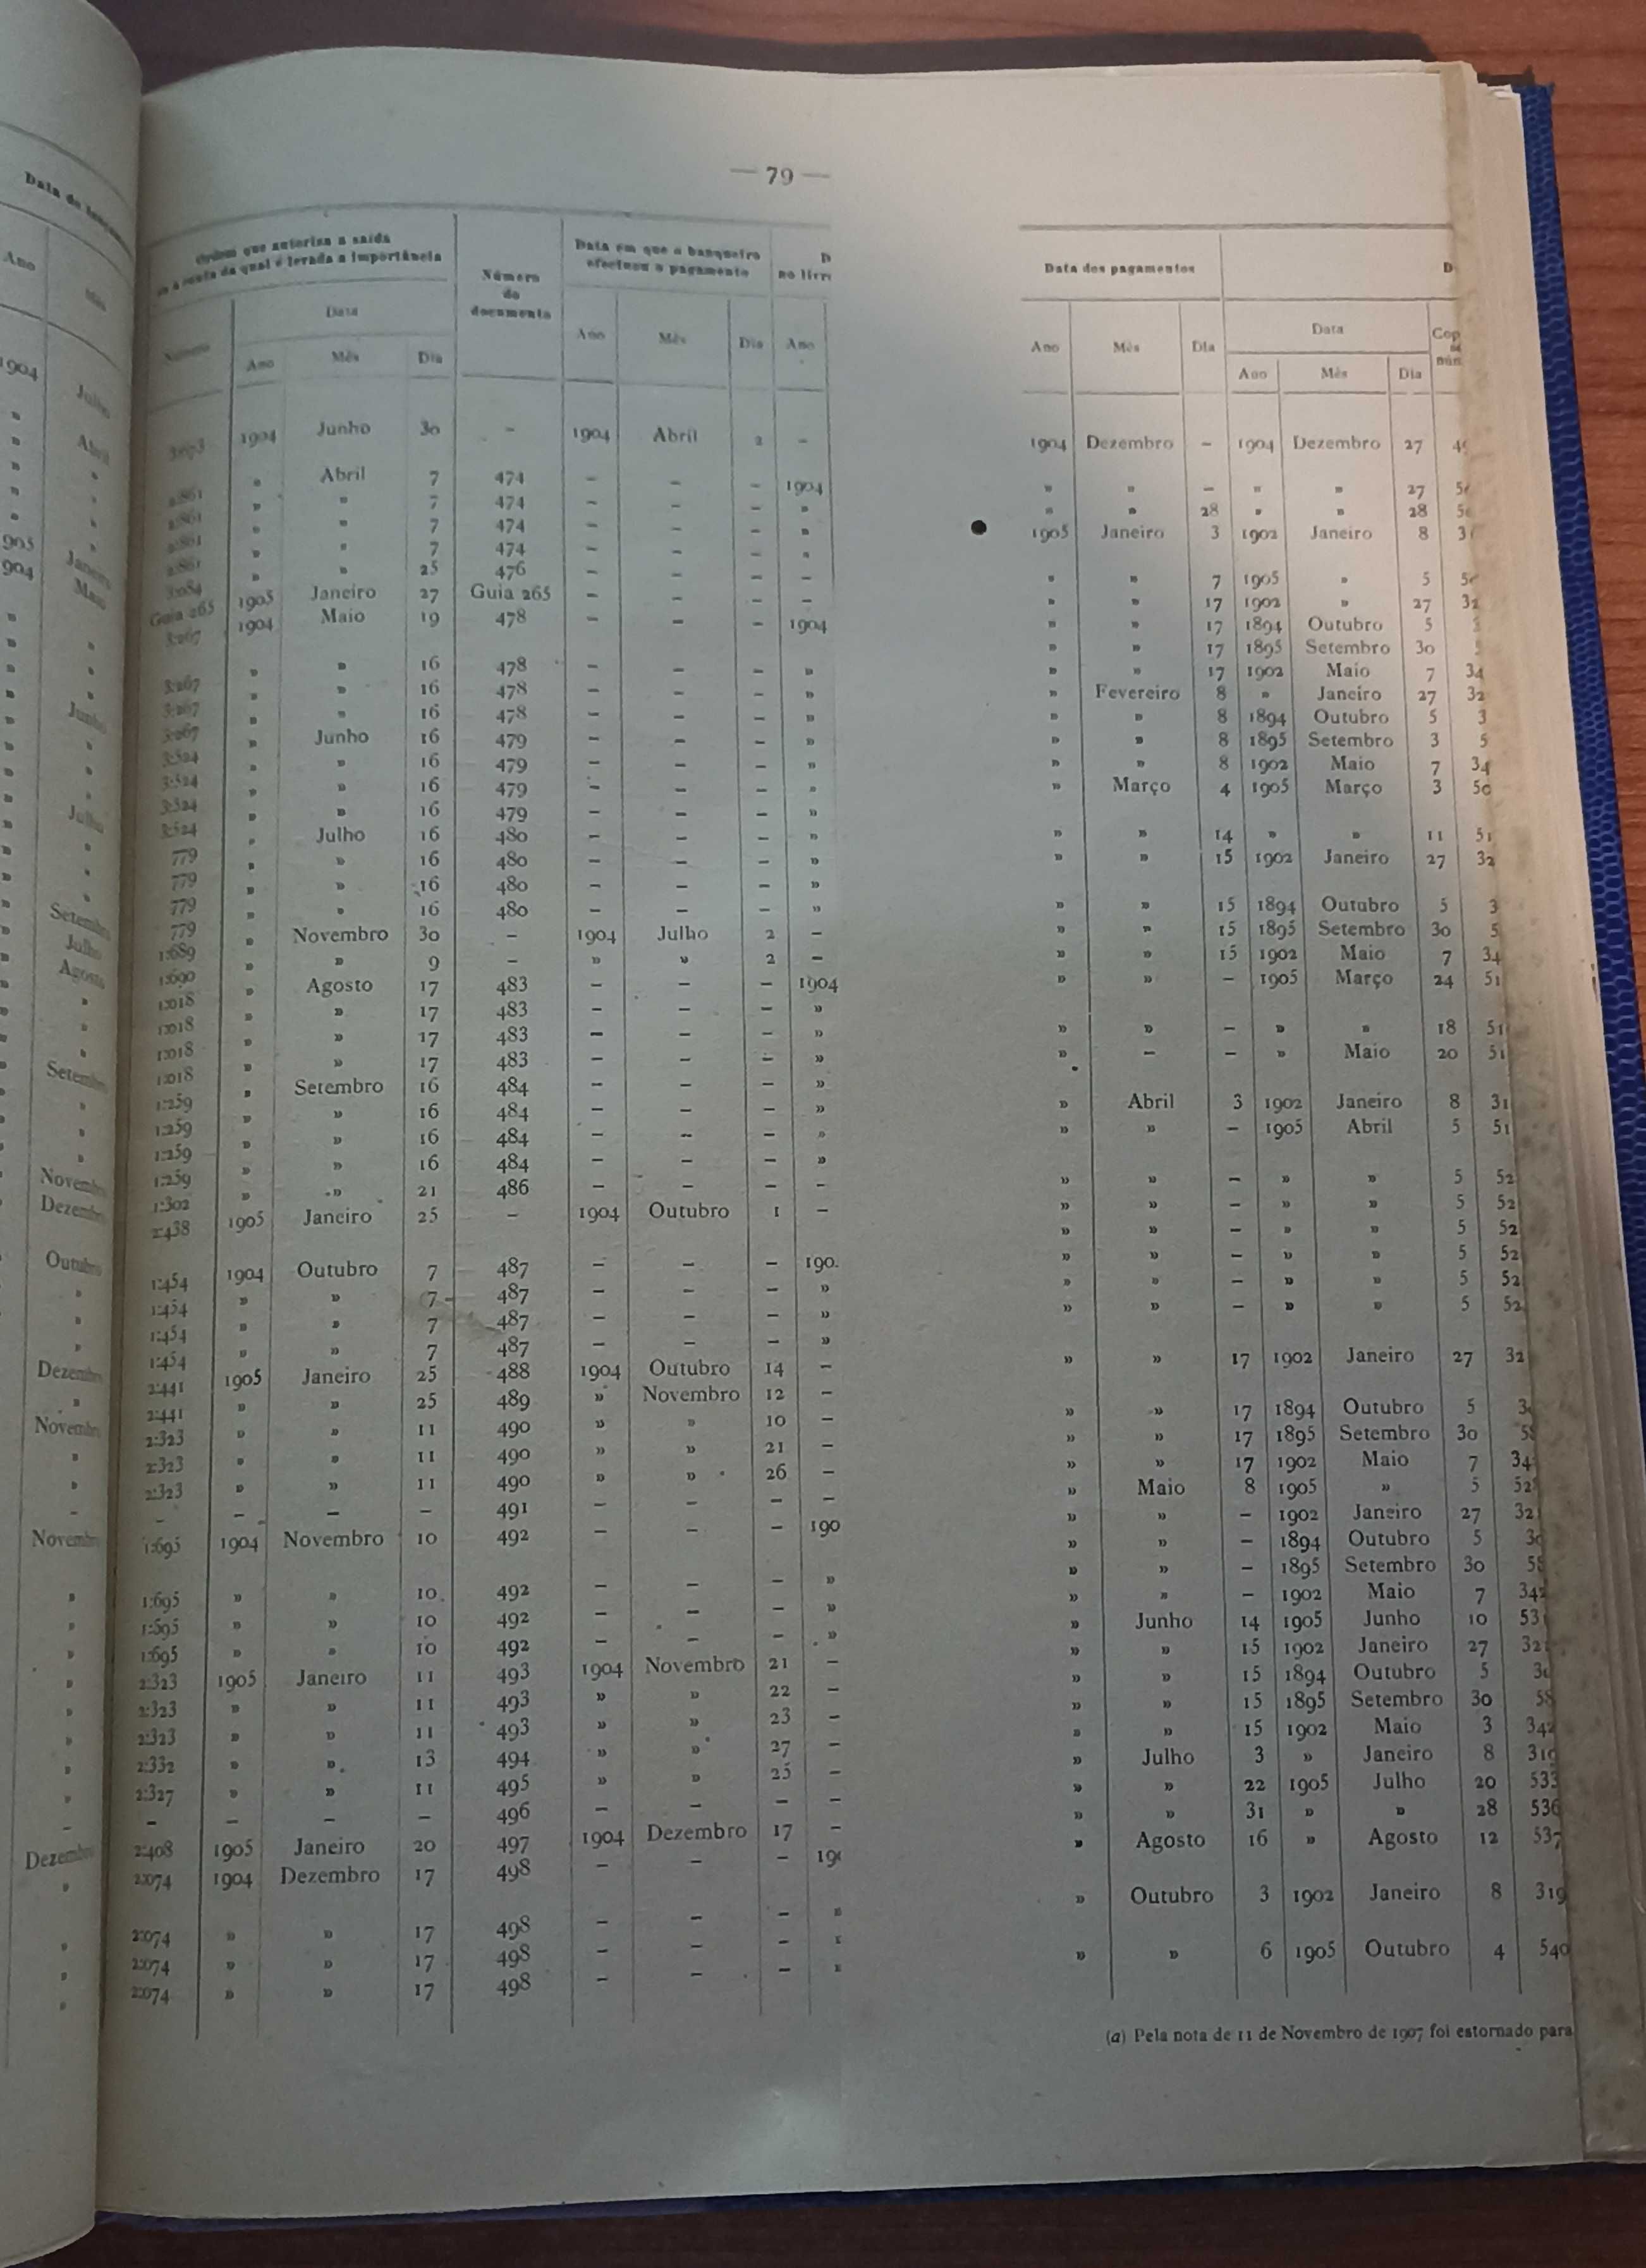 Data do
Ano
Mês
1904 Julho
» Abril
» »
» »
» »
1905 Janeiro
1904 Maio
» »
» »
» »
» Junho
» »
» »
» »
» Julho
» »
» »
» »
Setembro
Julho
Agosto
»
»
»
Setembro
»
»
»
Novembro
Dezembro
Outubro
»
»
»
Dezembro
»
Novembro
»
»
–
Novembro
»
»
»
»
»
»
»
»
–
Dezembro
»
»
»
»
— 79 —
Ordem que autoriza a saída
ou a conta da qual é levada a importância
Número
do
documento
Data em que o banqueiro
efectuou o pagamento
D
no livro
Número
Data
Ano Mês Dia
Ano Mês Dia Ano
3:073 1904 Junho 30 – 1904 Abril 2 –
2:861 » Abril 7 474 – – – 1904
2:861 » » 7 474 – – – »
2:861 » » 7 474 – – – »
2:861 » » 7 474 – – – »
3:084 » » 25 476 – – – –
Guia 265 1905 Janeiro 27 Guia 265 – – – –
3:267 1904 Maio 19 478 – – – 1904
3:267 » » 16 478 – – – »
3:267 » » 16 478 – – – »
3:267 » » 16 478 – – – »
3:524 » Junho 16 479 – – – »
3:524 » » 16 479 – – – »
3:524 » » 16 479 – – – »
3:524 » » 16 479 – – – »
779 » Julho 16 480 – – – »
779 » » 16 480 – – – »
779 » » 16 480 – – – »
779 » » 16 480 – – – »
1:689 » Novembro 30 – 1904 Julho 2 –
1:690 » » 9 – » » 2 –
1:018 » Agosto 17 483 – – – 1904
1:018 » » 17 483 – – – »
1:018 » » 17 483 – – – »
1:018 » » 17 483 – – – »
1:259 » Setembro 16 484 – – – »
1:259 » » 16 484 – – – »
1:259 » » 16 484 – – – »
1:259 » » 16 484 – – – »
1:302 » » 21 486 – – – –
2:438 1905 Janeiro 25 – 1904 Outubro 1 –
1:454 1904 Outubro 7 487 – – – 190
1:454 » » 7 487 – – – »
1:454 » » 7 487 – – – »
1:454 » » 7 487 – – – »
2:441 1905 Janeiro 25 488 1904 Outubro 14 –
2:441 » » 25 489 » Novembro 12 –
2:323 » » 11 490 » » 10 –
2:323 » » 11 490 » » 21 –
2:323 » » 11 490 » » 26 –
– – – – 491 – – – –
1:695 1904 Novembro 10 492 – – – 190
1:695 » » 10 492 – – – »
1:695 » » 10 492 – – – »
1:695 » » 10 492 – – – »
2:323 1905 Janeiro 11 493 1904 Novembro 21 –
2:323 » » 11 493 » » 22 –
2:323 » » 11 493 » » 23 –
2:332 » » 13 494 » » 27 –
2:327 » » 11 495 » » 25 –
– – – – 496 – – – –
2:408 1905 Janeiro 20 497 1904 Dezembro 17 –
2:074 1904 Dezembro 17 498 – – – 19
2:074 » » 17 498 – – – »
2:074 » » 17 498 – – – »
2:074 » » 17 498 – – – »
Data dos pagamentos D
Ano Mês Dia
Data
Cop
núm
Ano Mês Dia
1904 Dezembro – 1904 Dezembro 27 4
» » – » » 27 5
» » 28 » » 28 5
1905 Janeiro 3 1902 Janeiro 8 3
» » 7 1905 » 5 5
» » 17 1902 » 27 32
» » 17 1894 Outubro 5
» » 17 1895 Setembro 30 5
» » 17 1902 Maio 7 34
» Fevereiro 8 » Janeiro 27 32
» » 8 1894 Outubro 5 3
» » 8 1895 Setembro 3 5
» » 8 1902 Maio 7 34
» Março 4 1905 Março 3 50
» » 14 » » 11 51
» » 15 1902 Janeiro 27 32
» » 15 1894 Outubro 5 3
» » 15 1895 Setembro 30 5
» » 15 1902 Maio 7 34
» » – 1905 Março 24 51
» » – » » 18 51
» – – » Maio 20 51
» Abril 3 1902 Janeiro 8 31
» » – 1905 Abril 5 51
» » – » » 5 52
» » – » » 5 52
» » – » » 5 52
» » – » » 5 52
» » – » » 5 52
» » – » » 5 52
» » 17 1902 Janeiro 27 32
» » 17 1894 Outubro 5 3
» » 17 1895 Setembro 30 58
» » 17 1902 Maio 7 34
» Maio 8 1905 » 5 52
» » – 1902 Janeiro 27 32
» » – 1894 Outubro 5 30
» » – 1895 Setembro 30 58
» » – 1902 Maio 7 342
» Junho 14 1905 Junho 10 53
» » 15 1902 Janeiro 27 32
» » 15 1894 Outubro 5 30
» » 15 1895 Setembro 30 58
» » 15 1902 Maio 3 342
» Julho 3 » Janeiro 8 319
» » 22 1905 Julho 20 533
» » 31 » » 28 536
» Agosto 16 » Agosto 12 537
» Outubro 3 1902 Janeiro 8 319
» » 6 1905 Outubro 4 540
(a) Pela nota de 11 de Novembro de 1907 foi estornado para